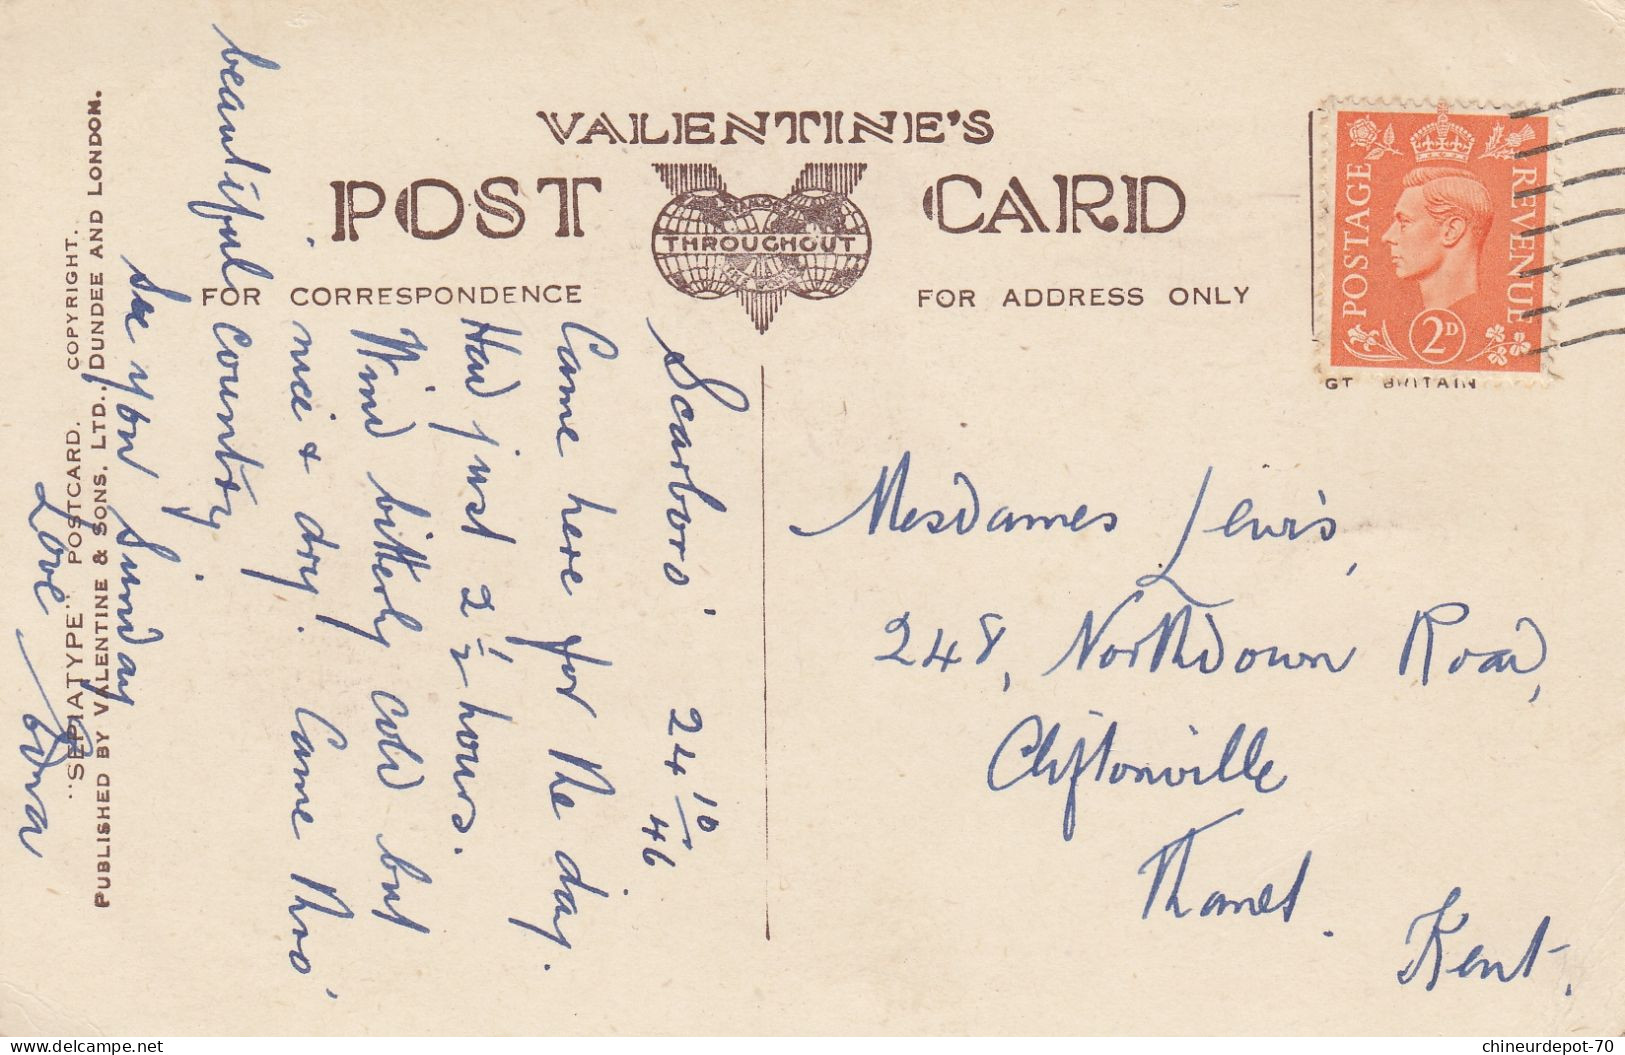 VALENTINE'S
POST CARD
THROUGHOUT
FOR CORRESPONDENCE
FOR ADDRESS ONLY
POSTAGE
REVENUE
2D
GT BRITAIN
Scarboro' 24/10/46
Came here for the day.
Had just 2 1/2 hours.
Wind bitterly cold but
nice & dry. Came thro'
beautiful country.
See you Sunday
Love
Mesdames Lewis,
248, Northdown Road,
Cliftonville
Thanet.
Kent.
"SEPIATYPE" POSTCARD. COPYRIGHT.
PUBLISHED BY VALENTINE & SONS. LTD. DUNDEE AND LONDON.
delcampe.net
chineurdepot-70